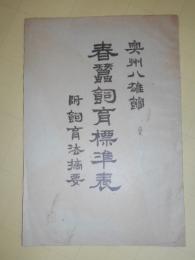 奥州八雄館
春蠶飼育標準表
附飼育法摘要